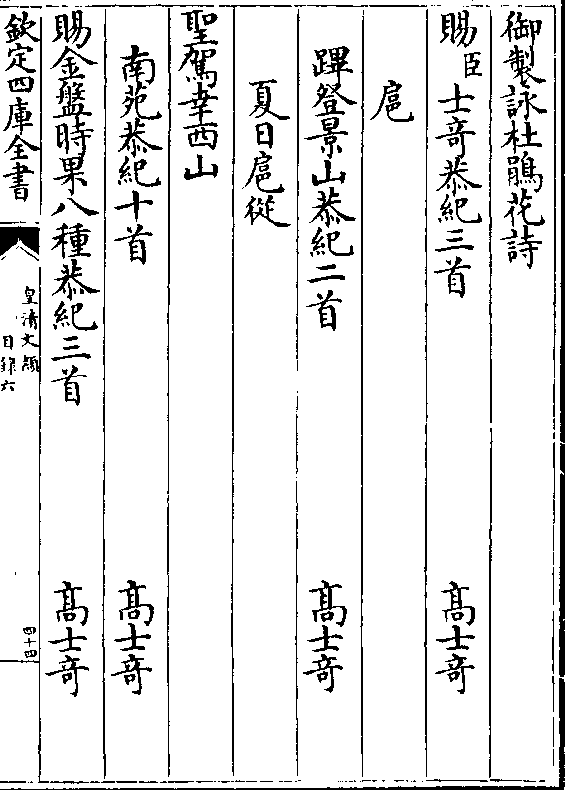 御製詠杜鵑花詩
賜臣士竒恭紀三首 髙士竒
扈
蹕登景山恭紀二首 髙士竒
夏日扈從
聖駕幸西山
南苑恭紀十首 髙士竒
賜金盤時果八種恭紀三首 髙士竒
欽定四庫全書
皇清文穎
目録六
四十四